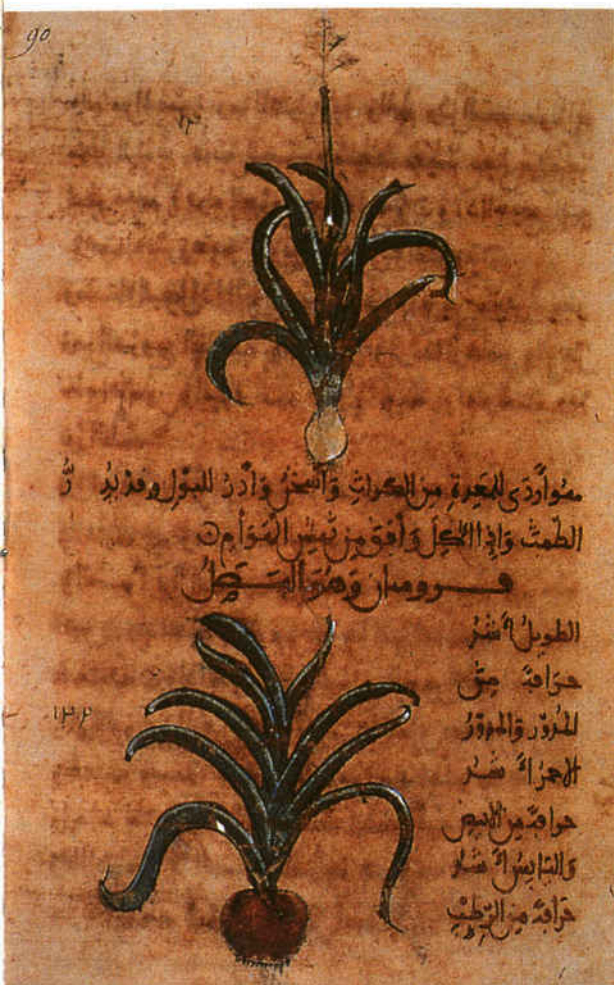 90
هو أردى للمعدة من الكراث وأسخن وأدر للبول وقد يدر
الطمث وإذا أكل وافق من نهش الهوام
وهو البصل
الطويل أشد
حرافة من
المدور والمدور
الاحمر أشد
١٢٢
حرافة من الابيض
واليابس أشد
حرافة من الرطب